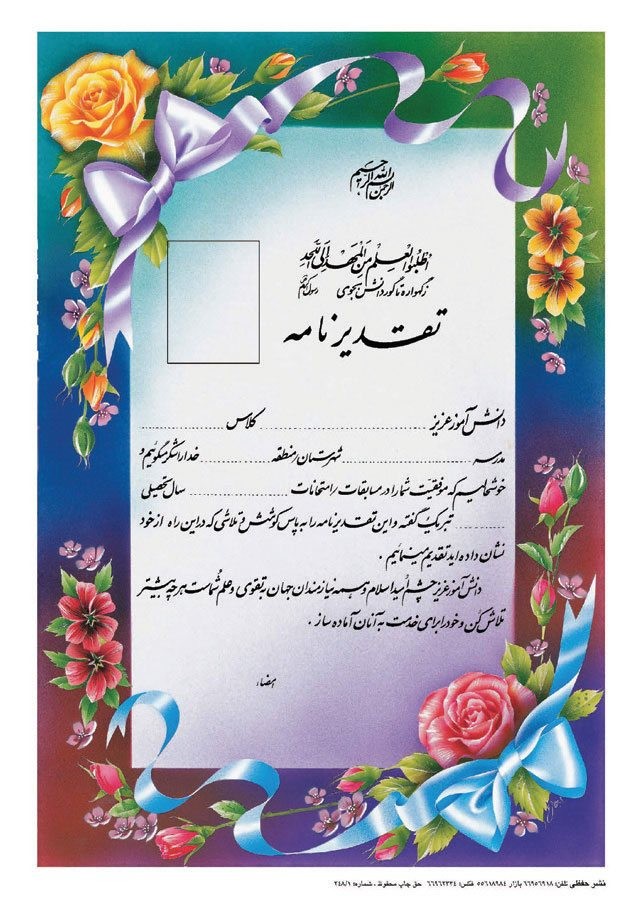 بسم الله الرحمن الرحیم
اطلبوا العلم من المهد الی اللحد
زگهواره تا گور دانش بجوی رسول اکرم
تقدیرنامه
دانش‌آموز عزیز ........ کلاس ........
مدرسه ........ شهرستان/منطقه ........ خدا را شکر میگوئیم و
خوشحالیم که موفقیت شما را در مسابقات/امتحانات ........ سال تحصیلی
........ تبریک گفته و این تقدیرنامه را به پاس کوشش و تلاشی که در این راه از خود
نشان داده‌اید تقدیم مینمائیم .
دانش‌آموز عزیز چشم امید اسلام و همه نیازمندان جهان به تقوی و علم شماست هر چه بیشتر
تلاش کن و خود را برای خدمت به آنان آماده ساز .
امضاء
نشر حفظی تلفن: ۶۶۹۵۶۹۱۸ بازار ۵۵۶۱۸۹۸۴ فکس: ۶۶۹۶۲۳۳۴ حق چاپ محفوظ ، شماره: ۲۴۸/۱